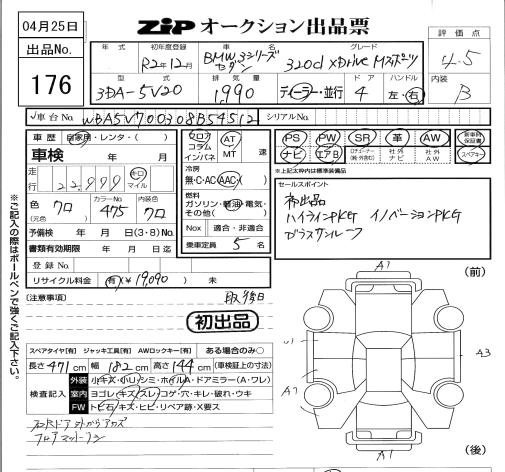 04月25日
ZIP オークション出品票
評価点
4.5
出品No.
176
年式 初年度登録 車名 グレード
R2年12月 BMW 3シリーズ セダン 320d xDrive Mスポーツ
型式 排気量 ドア ハンドル 内装
3DA-5V20 1990 ディーラー・並行 4 左・右 B
車台No. WBA5V700308B54512 シリアルNo.
車歴 自家用・レンタ・( )
フロア コラム インパネ AT MT 速
PS PW SR 革 AW 新車時保証書
ナビ エアB 社外ナビ 社外AW スペアキー
※上記太枠内は標準装備品
車検 年 月
走行 22,999 キロ マイル
冷房 無・C・AC・AAC
燃料 ガソリン・軽油・電気・その他( )
色 クロ (元色) カラーNo. 475 内装色 クロ
予備検 年 月 日(3・8)No.
Nox 適合・非適合
書類有効期限 年 月 日迄
乗車定員 5 名
登録No.
リサイクル料金 有(¥19,090) 未
セールスポイント
初出品
ハイラインPKG イノベーションPKG
ガラスサンルーフ
(注意事項)
取後日
初出品
スペアタイヤ[有] ジャッキ工具[有] AWロックキー[有] ある場合のみ○
長さ 471 cm 幅 182 cm 高さ 144 cm (車検証上の寸法)
検査記入
外装 小キズ・小U・シミ・ホイルA・ドアミラー(A・ワレ)
室内 ヨゴレ・キズ・スレ・コゲ・穴・キレ・破れ・ウキ
FW トビ石・キズ・ヒビ・リペア跡・X要ス
フロアマットナシ
※ご記入の際はボールペンで強くご記入下さい。
(前)
A1
A3
A1
(後)